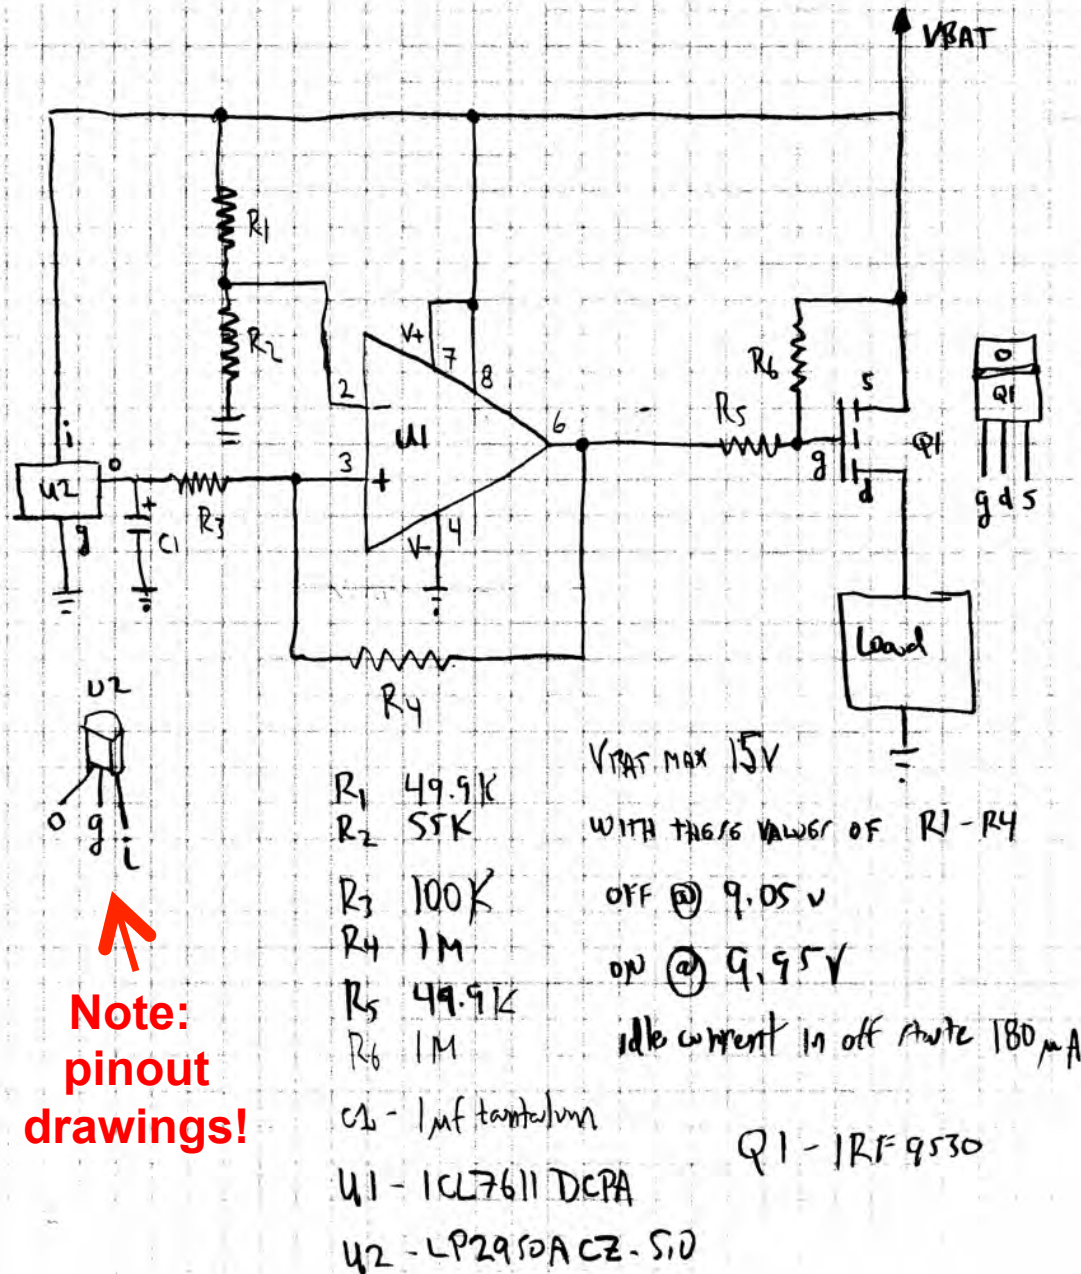 VBAT
R1
R2
V+
7
8
2
-
U1
6
3
+
V-
4
i
U2
o
g
+
C1
R3
R4
R5
R6
s
g
d
Q1
Q1
g d s
Load
U2
o g i
Note:
pinout
drawings!
R1 49.9K
R2 55K
R3 100K
R4 1M
R5 49.9K
R6 1M
C1 - 1µf tantalum
U1 - ICL7611 DCPA
U2 - LP2950ACZ-5.0
VBAT MAX 15V
WITH THESE VALUES OF R1-R4
OFF @ 9.05 V
ON @ 9.95V
idle current in off state 180µA
Q1 - IRF9530